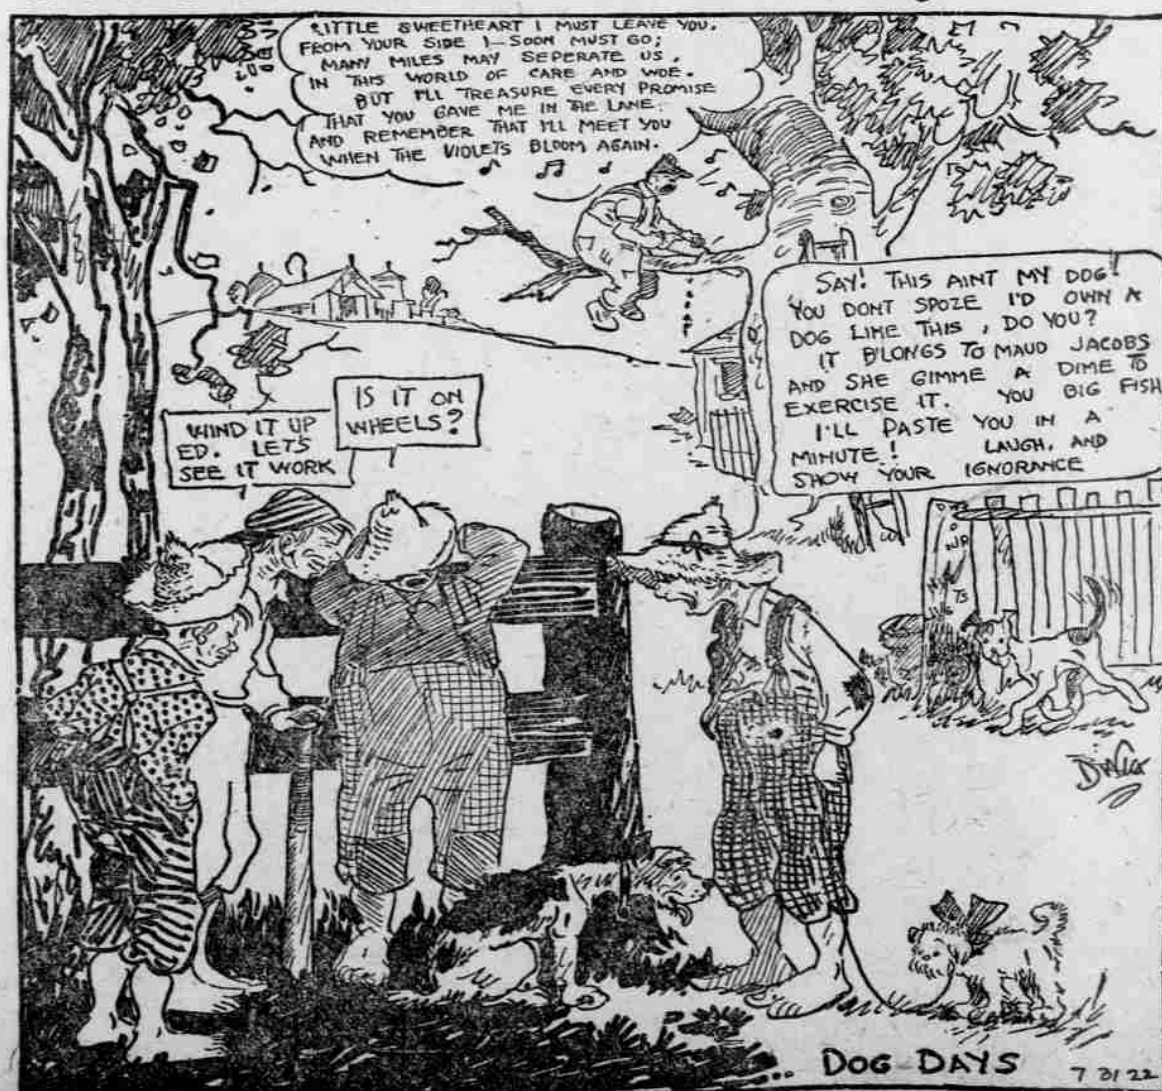 LITTLE SWEETHEART I MUST LEAVE YOU.
FROM YOUR SIDE I SOON MUST GO;
MANY MILES MAY SEPERATE US,
IN THIS WORLD OF CARE AND WOE.
BUT I'LL TREASURE EVERY PROMISE
THAT YOU GAVE ME IN THE LANE.
AND REMEMBER THAT I'LL MEET YOU
WHEN THE VIOLETS BLOOM AGAIN.
SAY! THIS AINT MY DOG!
YOU DONT SPOZE I'D OWN A
DOG LIKE THIS, DO YOU?
IT B'LONGS TO MAUD JACOBS
AND SHE GIMME A DIME TO
EXERCISE IT. YOU BIG FISH
I'LL PASTE YOU IN A
MINUTE! LAUGH, AND
SHOW YOUR IGNORANCE
IS IT ON
WHEELS?
WIND IT UP
ED. LET'S
SEE IT WORK
DOG DAYS
7 31 22